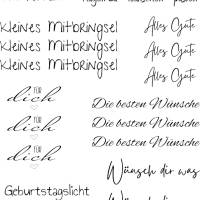 kleines Mitbringsel
kleines Mitbringsel
kleines Mitbringsel
Alles Gute
Alles Gute
Alles Gute
FÜR
dich
FÜR
dich
FÜR
dich
Die besten Wünsche
Die besten Wünsche
Die besten Wünsche
Wünsch dir was
Wünsch dir was
Geburtstagslicht